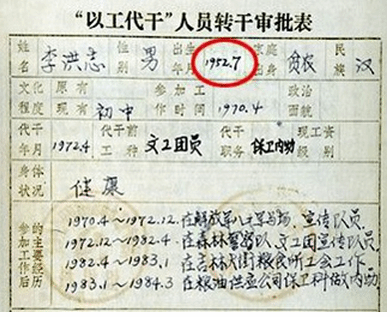 “以工代干”人员转干审批表
姓名 李洪志 性别 男 出生年月 1952.7 家庭出身 贫农 民族 汉
文化程度 原有 现有 初中 参加工作时间 1970.4 政治面貌
代干年月 1972.4 代干前工种 文工团员 现代干职务 保卫内勤 现工资
身体状况 健康
参加工作后的主要经历
1970.4~1972.12. 在解放军八一军马场、宣传队员.
1972.12~1982.4 在森林警察队文工团宣传队员.
1982.4~1983.1 在吉林大街粮食所工会工作
1983.1~1984.3 在粮油供应公司保卫科做内勤.